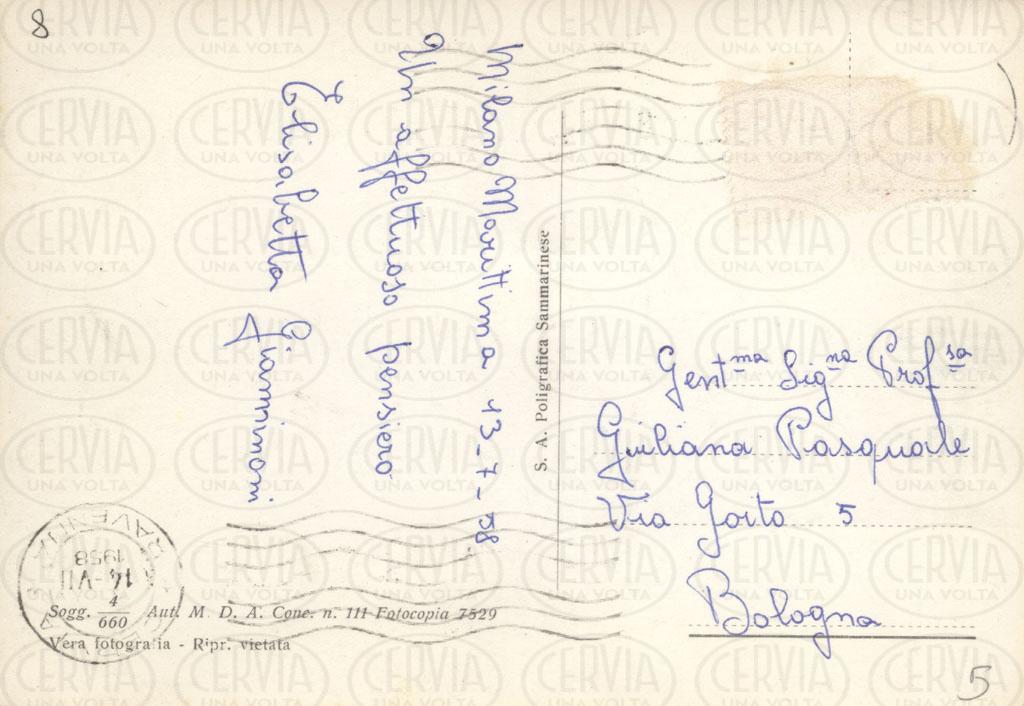 8
Milano Marittima 13-7-58
Un affettuoso pensiero
Elisabetta Giannimoni
S. A. Poligrafica Sammarinese
Gent.ma Sig.na Prof.ssa
Giuliana Pasquale
Via Goito 5
Bologna
RAVENNA
14-VII
1958
Sogg. 4/660 Aut. M. D. A. Conc. n. 111 Fotocopia 7529
Vera fotografia - Ripr. vietata
5
CERVIA
UNA VOLTA